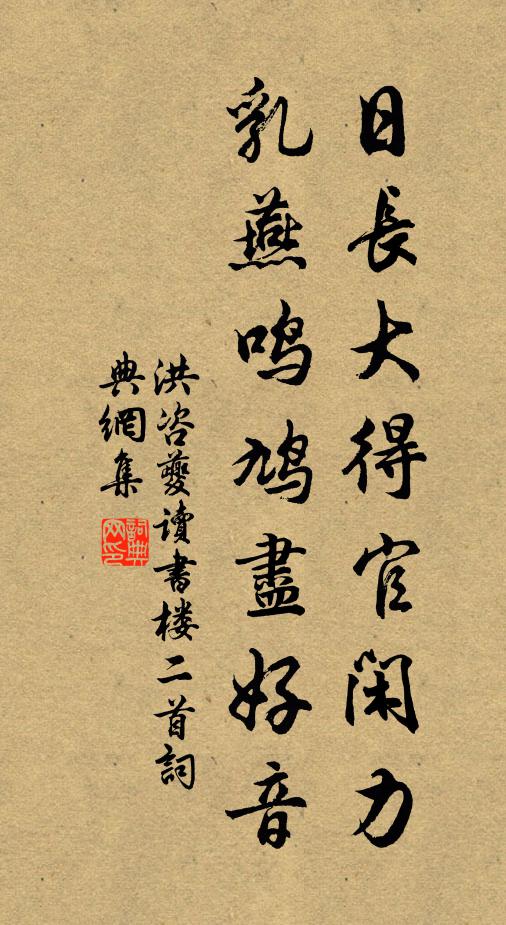 日長大得官閑力
乳燕鳴鳩盡好音
洪咨夔讀書楼二首詞
典網集
詞典
网印